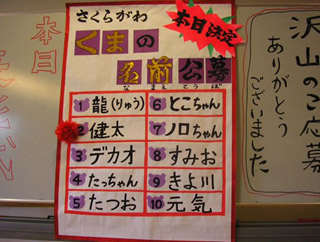 本日
本日決定
さくらがわ
くまの
名前公募
なまえこうぼ
1 龍(りゅう)
2 健太
3 デカオ
4 たっちゃん
5 たつお
6 とこちゃん
7 ノロちゃん
8 すみお
9 きよ川
10 元気
沢山のご応募
ありがとう
ございました